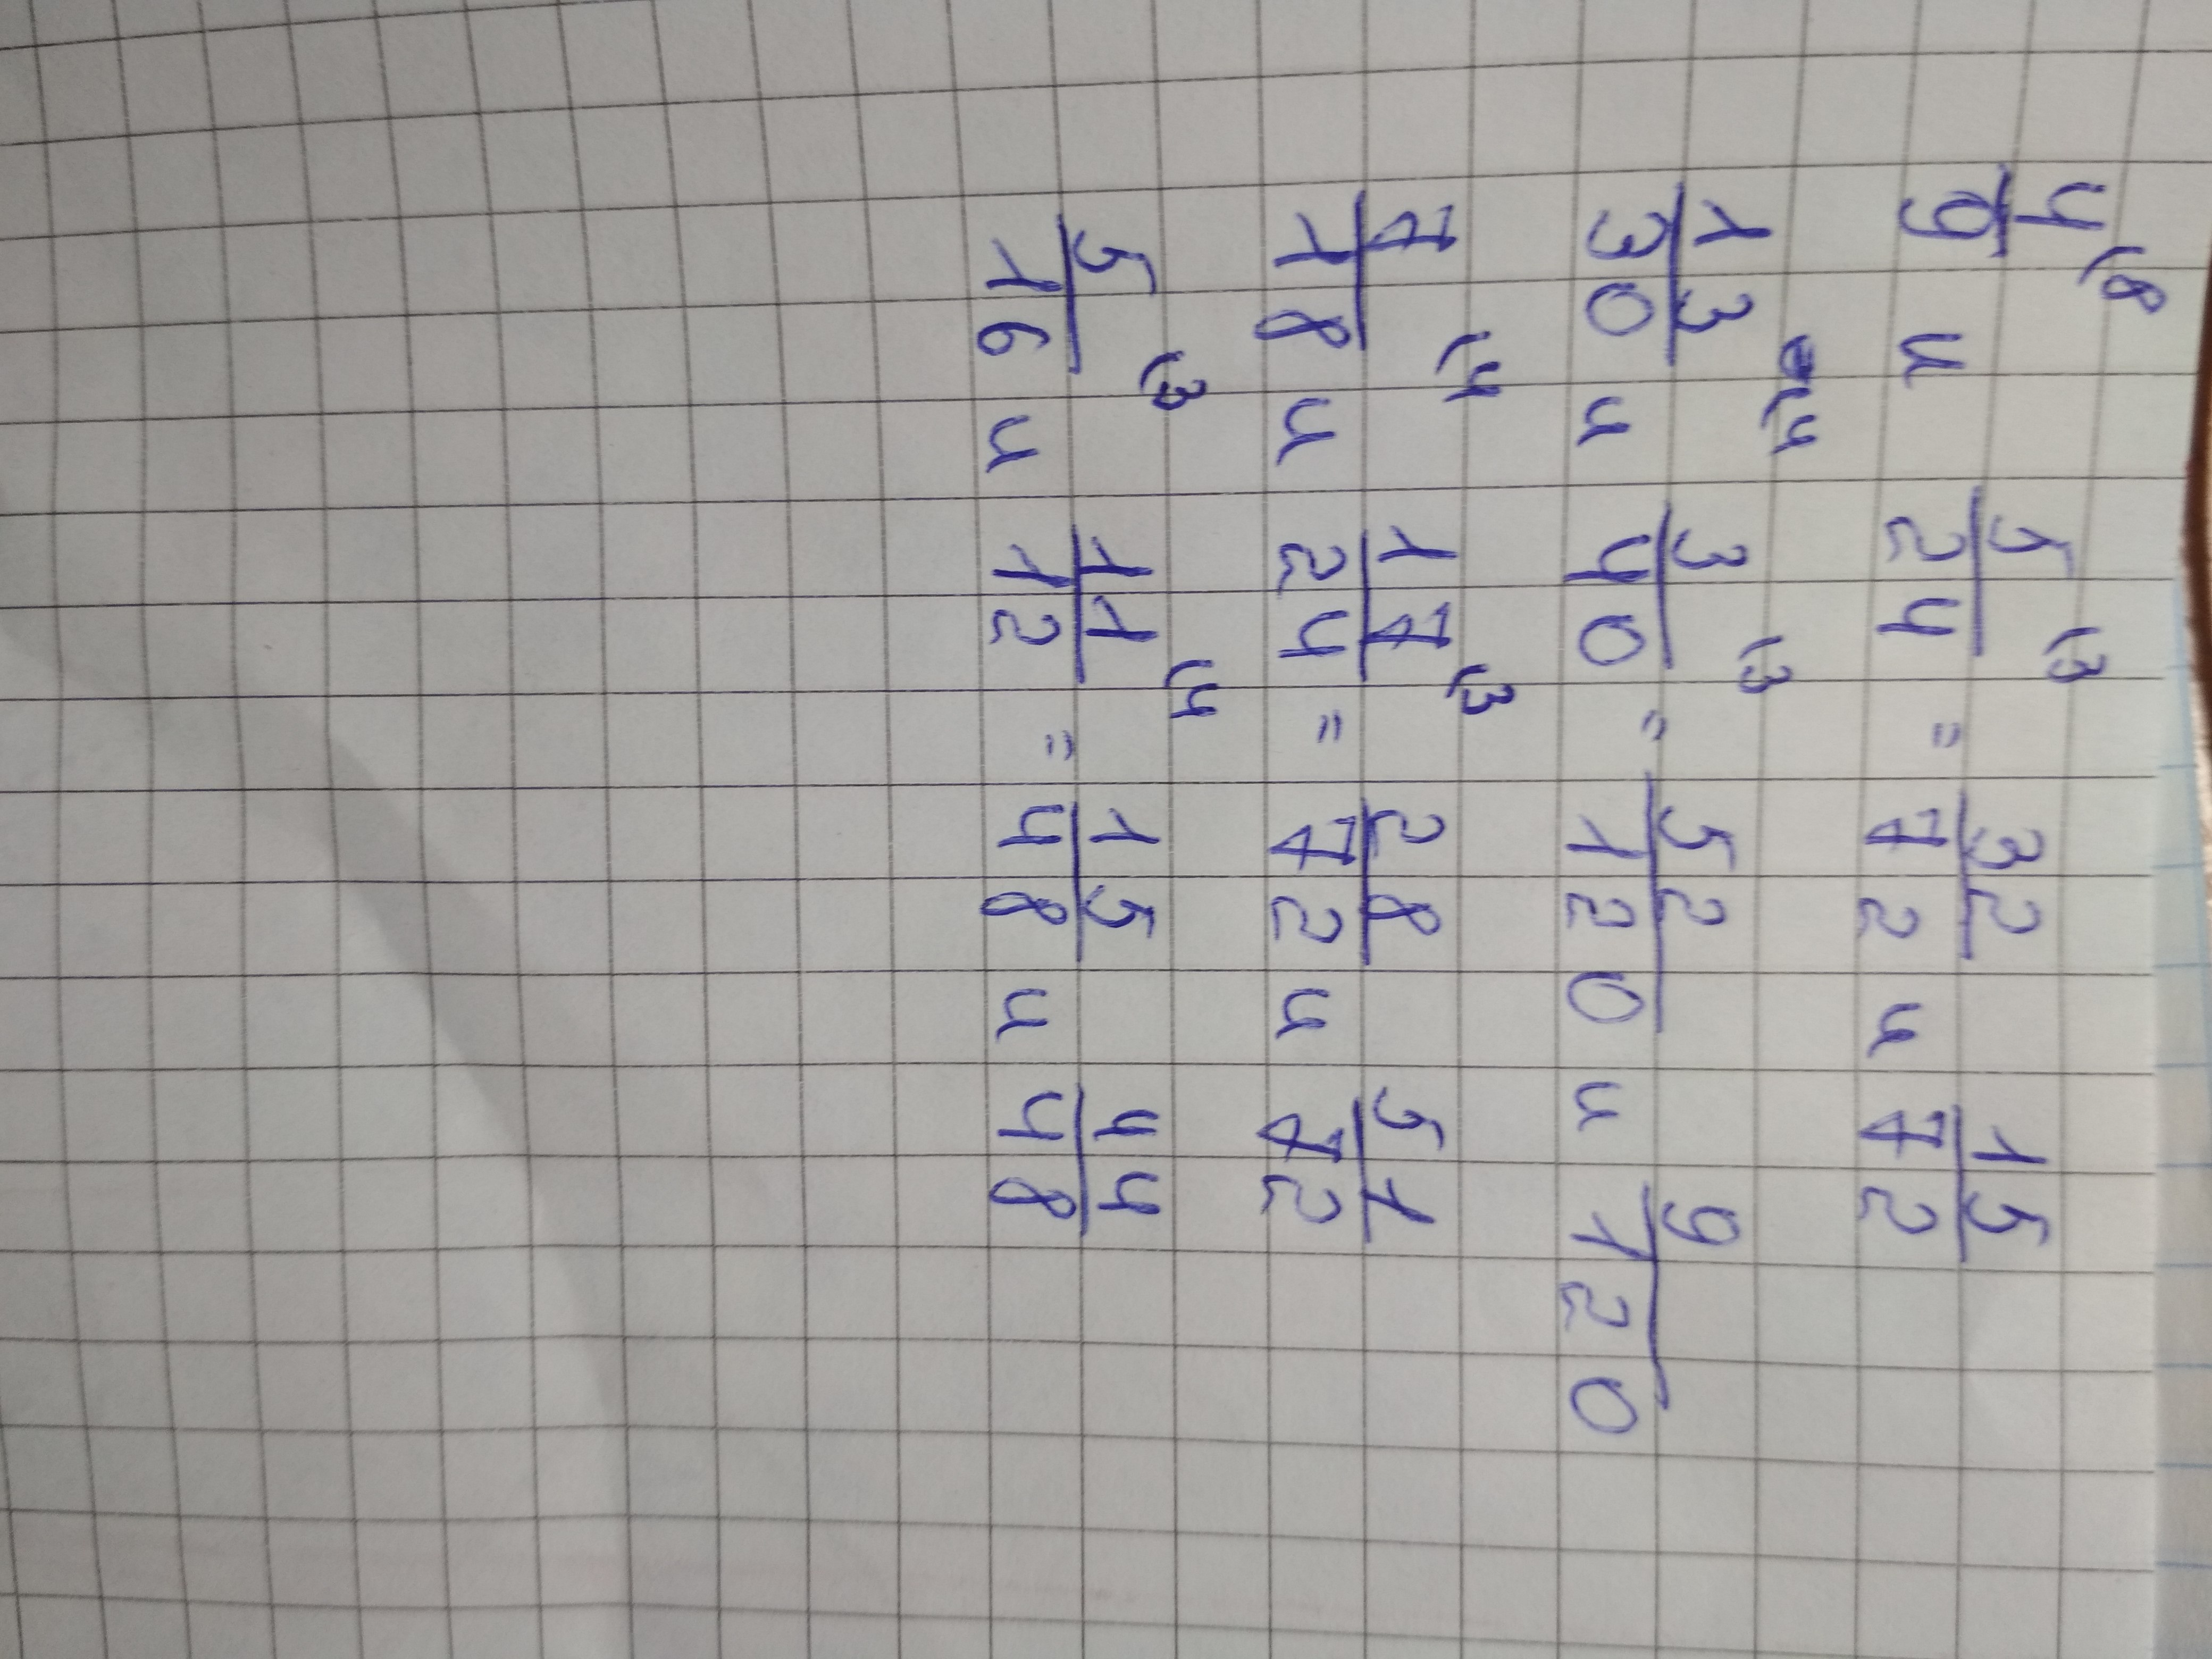 4/9 \8 и 5/24 \3 = 32/72 и 15/72
13/30 \4 и 3/40 \3 = 52/120 и 9/120
7/18 \4 и 17/24 \3 = 28/72 и 51/72
5/16 \3 и 11/12 \4 = 15/48 и 44/48